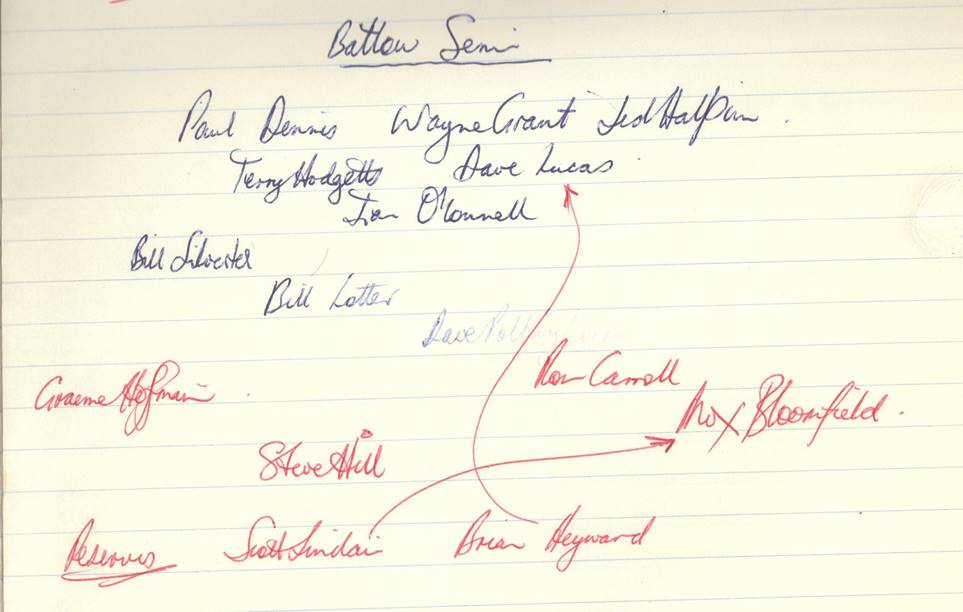 Batlow Semi
Paul Dennis Wayne Grant Ted Halpin
Terry Hodgetts Dave Lucas
Ian O'Connell
Bill Silvester
Bill Lotter
Dave
Ron Carroll
Graeme Hofmain
Max Bloomfield.
Steve Hill
Reserves Scott Sinclair Brian Heyward